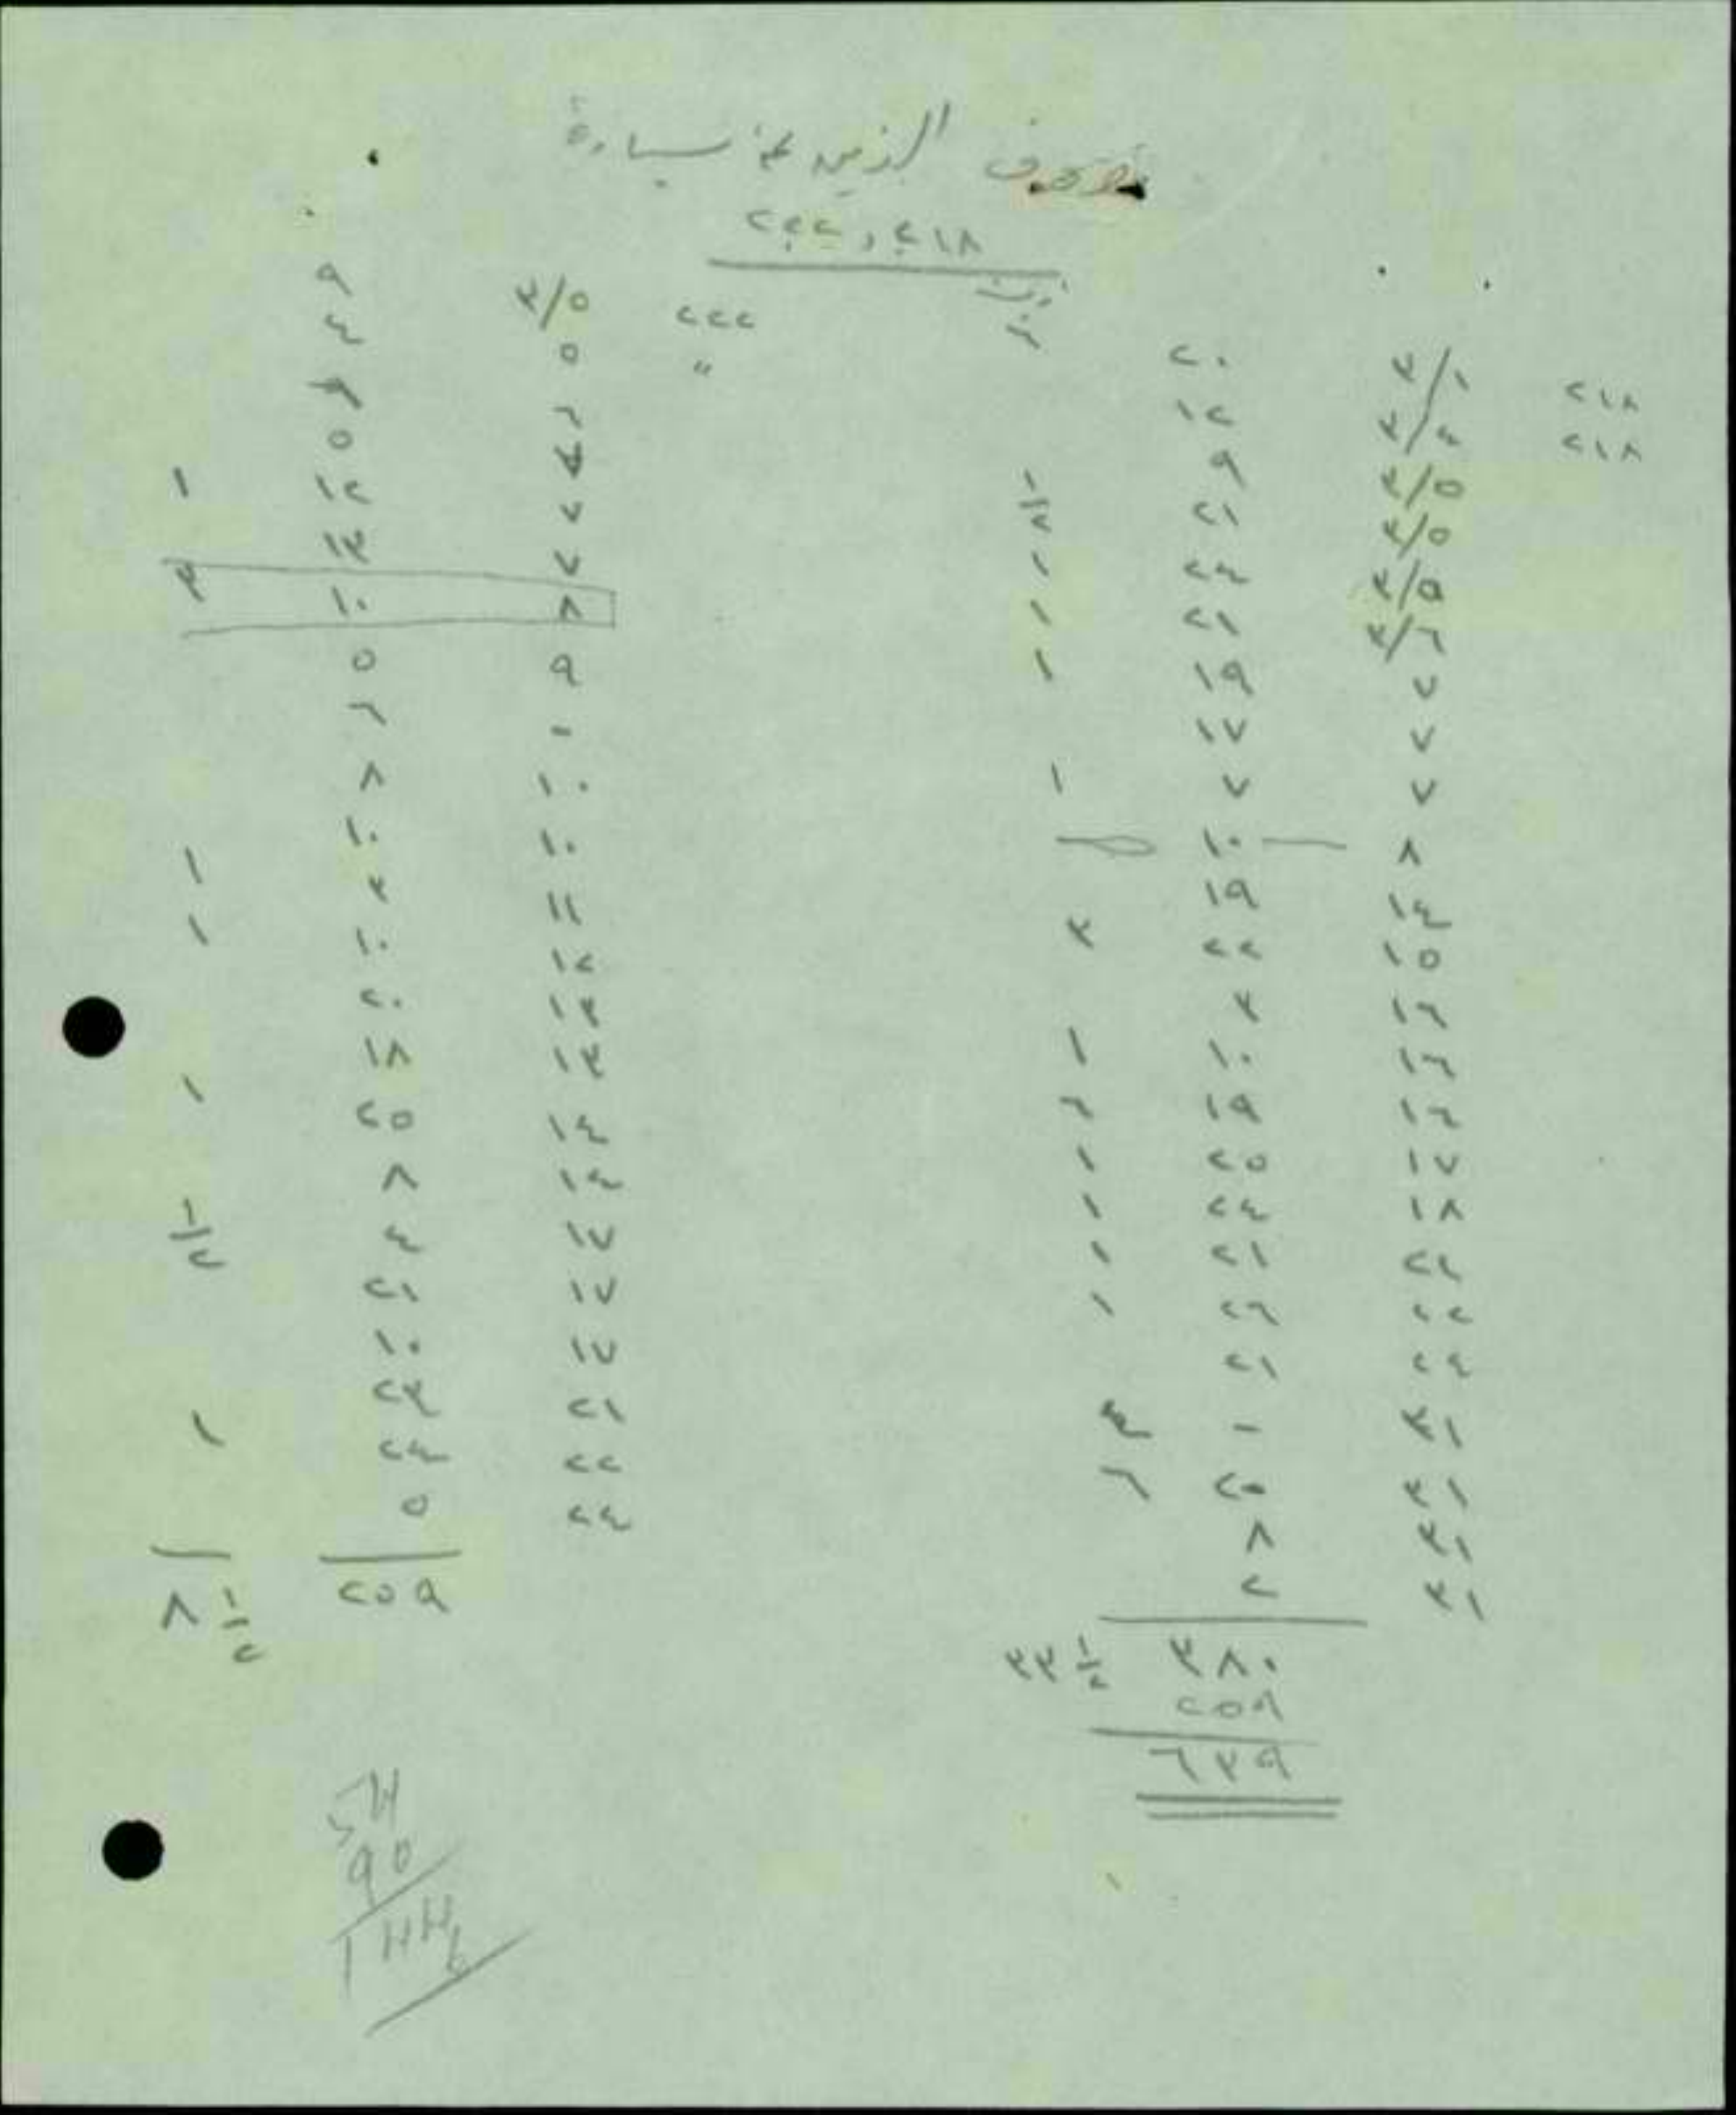 مصروف البنزين على سيارة
٢١٨ و ٢٢٢
زيت
٢١٨ ٣/١ ٢٠
٢١٨ ٣/٤ ١٢
٣/٥ ٩
٣/٥ ٢١ ١/٢
٣/٥ ٢٤ ١
٣/٦ ٢١ ١
٧ ١٩ ١
٧ ١٧
٧ ٧ ١
٨ ١٠
١٤ ١٩
١٥ ٢٢ ٣
١٦ ٣
١٦ ١٠ ١
١٦ ١٩ ٦
١٧ ٢٥ ١
١٨ ٢٤ ١
٢١ ١
٢٢ ٢٦ ١
٢٤ ٢١
٣١ - ٤
٣١ ٢٠ ٦
٣١ ٨
٣١ ٢
٣٨٠ ٣٣ ١/٢
٢٥٩
٦٣٩
٢٢٢ ٣/٥ ٩
" ٥ ٤
٦ ٦
٧ ٥
٧ ١٢ ١
٧ ١٣
٨ ١٠ ٣
٩ ٥
- ٦
١٠ ٨
١٠ ١٠ ١
١١ ٣
١٢ ١٠ ١
١٣ ٢٠
١٣ ١٨ ١
١٤ ٢٥
١٤ ٨
١٧ ٤ ١/٢
١٧ ٢١
١٧ ١٠
٢١ ٢٣ ١
٢٢ ٢٤
٢٤ ٥
٢٥٩ ٨ ١/٢